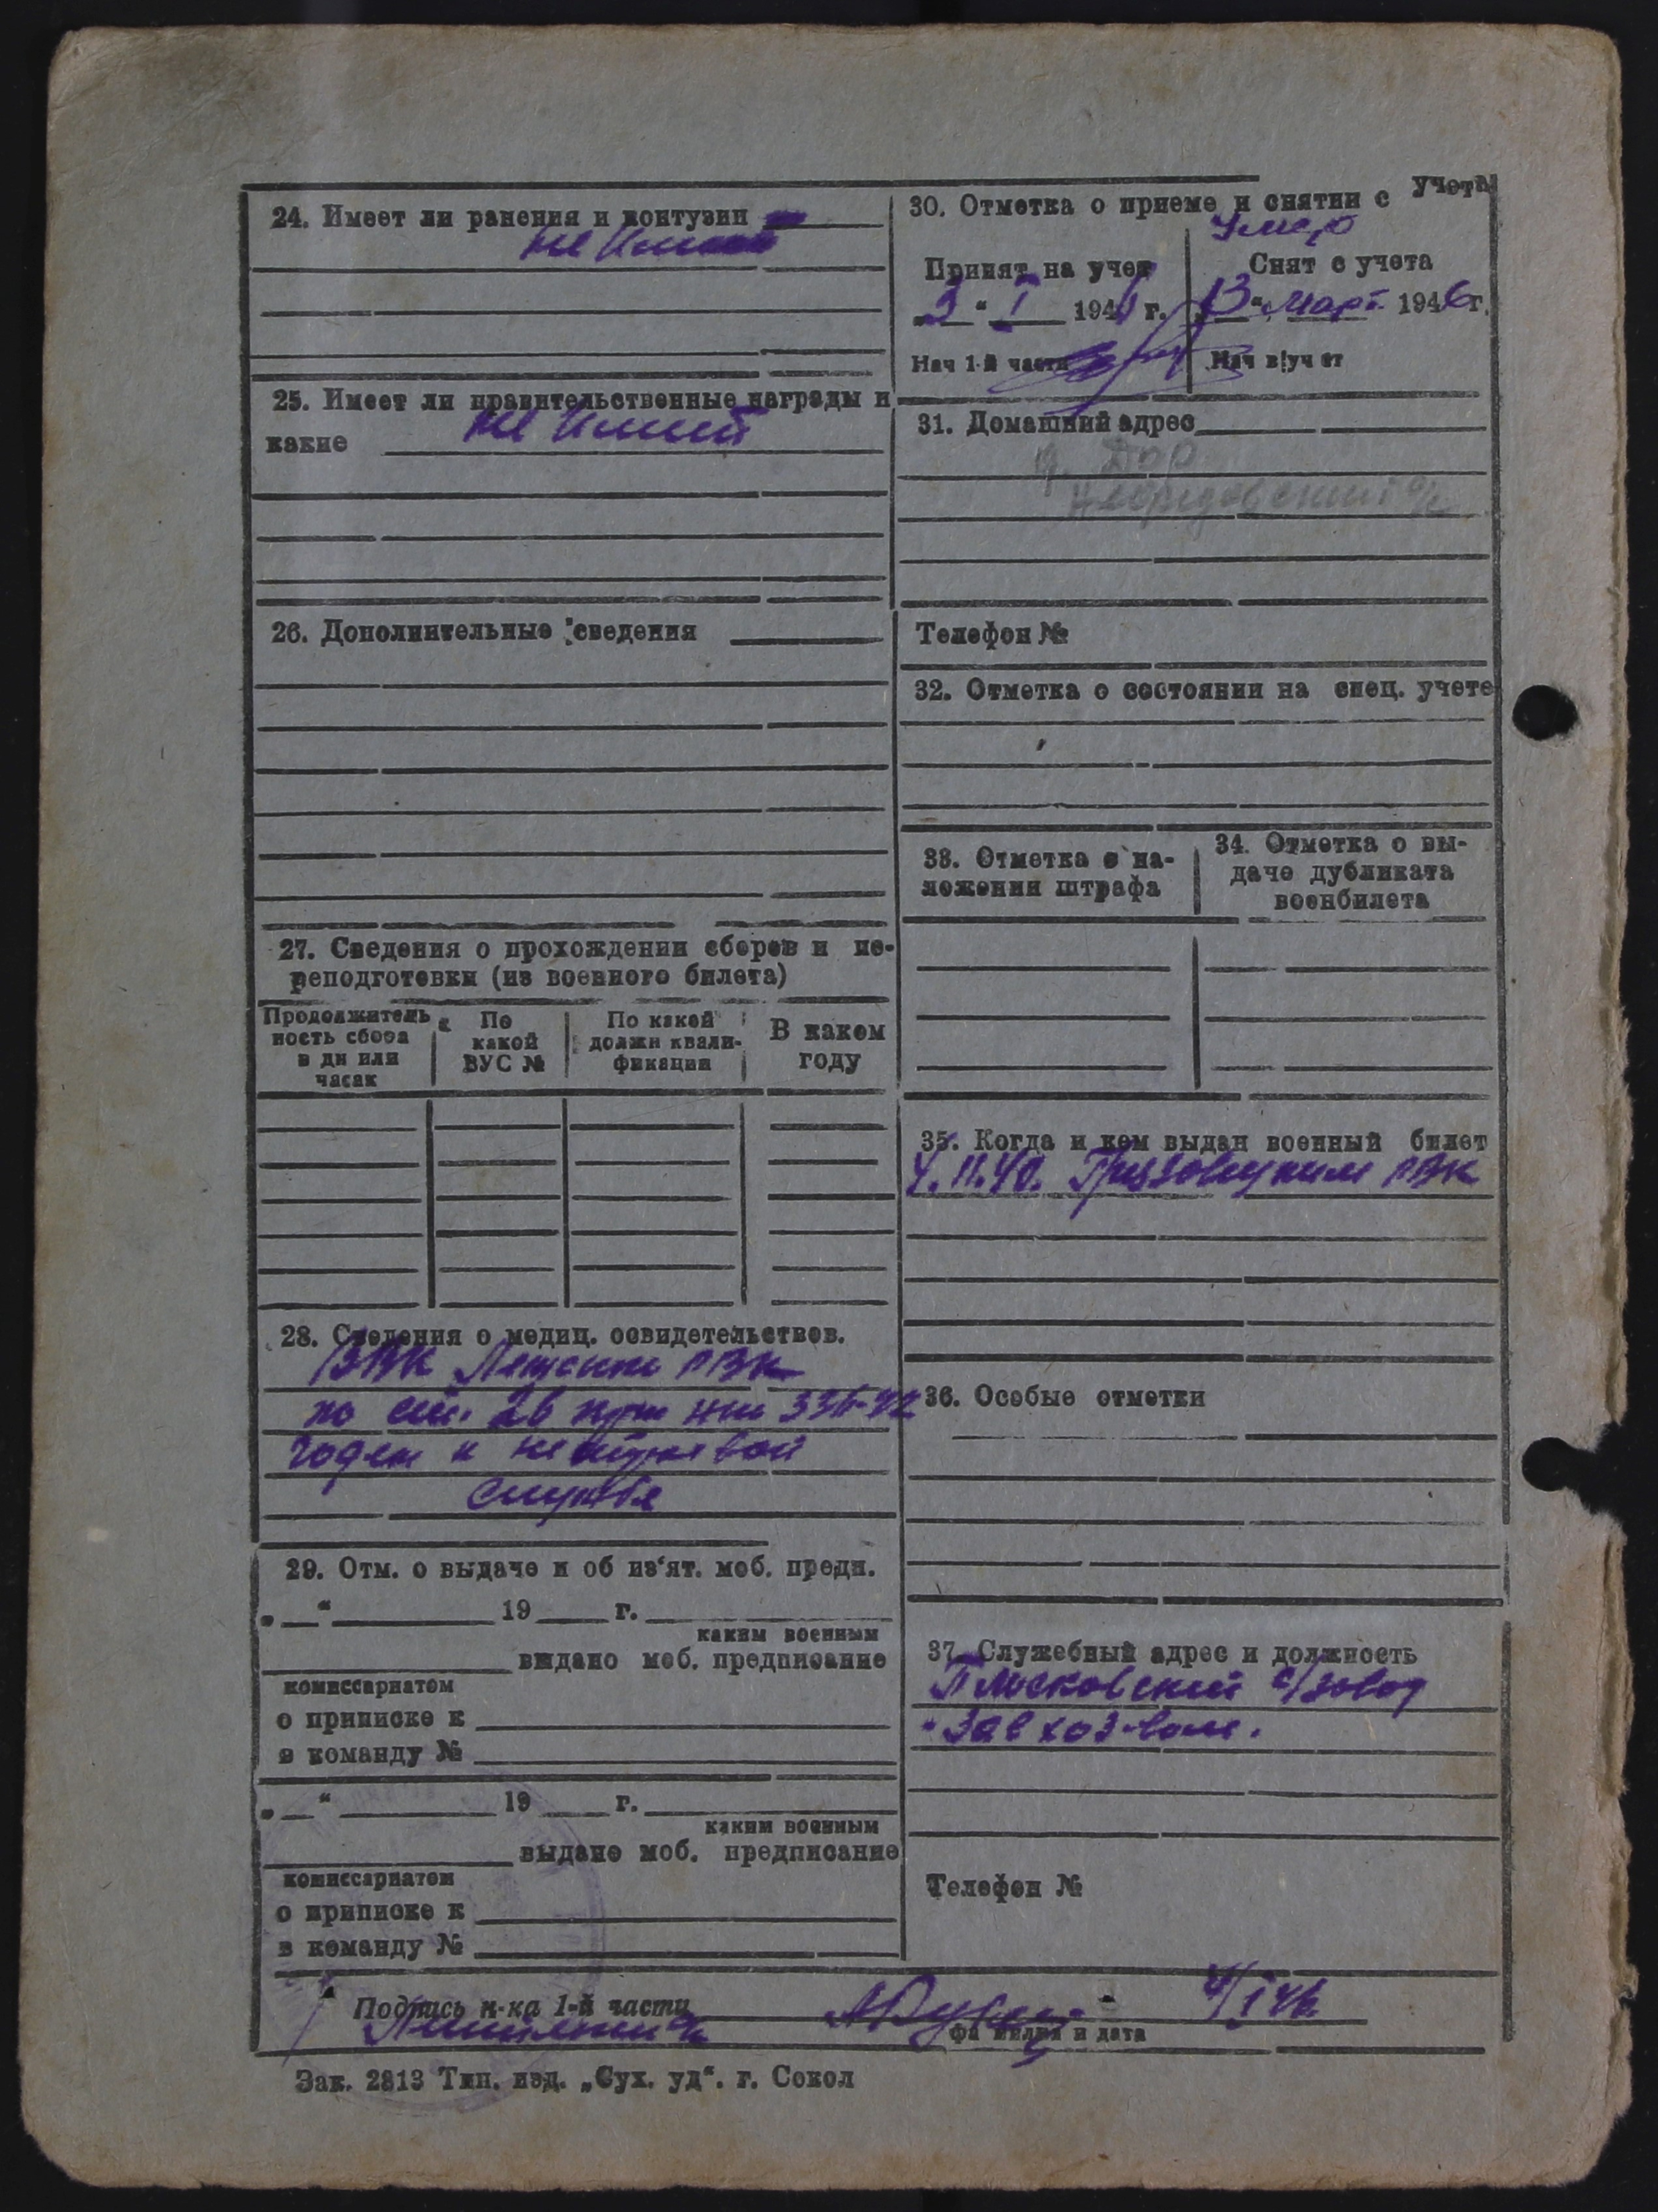 24. Имеет ли ранения и контузии
не имеет
25. Имеет ли правительственные награды и
какие не имеет
26. Дополнительные сведения
27. Сведения о прохождении сборов и пе-
реподготовки (из военного билета)
Продолжитель
ность сбора
в дн или
часах
По
какой
ВУС №
По какой
должн квали-
фикации
В каком
году
28. Сведения о медиц. освидетельствов.
РВК
по ст. 2б 336-42
годен к нестроевой
службе
29. Отм. о выдаче и об из'ят. моб. предп.
„__“ ______ 19 ___ г. ______
каким военным
______ выдано моб. предписание
комиссариатом
о приписке к
в команду №
„__“ ______ 19 ___ г. ______
каким военным
______ выдано моб. предписание
комиссариатом
о приписке к
в команду №
30. Отметка о приеме и снятии с учета
Принят на учет
„3“ I 194 г.
Нач 1-й части
Умер
Снят с учета
„13“ март 1946г.
Нач в|уч ет
31. Домашний адрес
Телефон №
32. Отметка о состоянии на спец. учете
33. Отметка о на-
ложении штрафа
34. Отметка о вы-
даче дубликата
военбилета
35. Когда и кем выдан военный билет
4.11.40. Грязовецким РВК
36. Особые отметки
37. Служебный адрес и должность
Плосковский с/завод
Зав хоз-вом.
Телефон №
Подпись н-ка 1-й части
4/I 46
фамилия и дата
Зак. 2813 Тип. изд. „Сух. уд“. г. Сокол